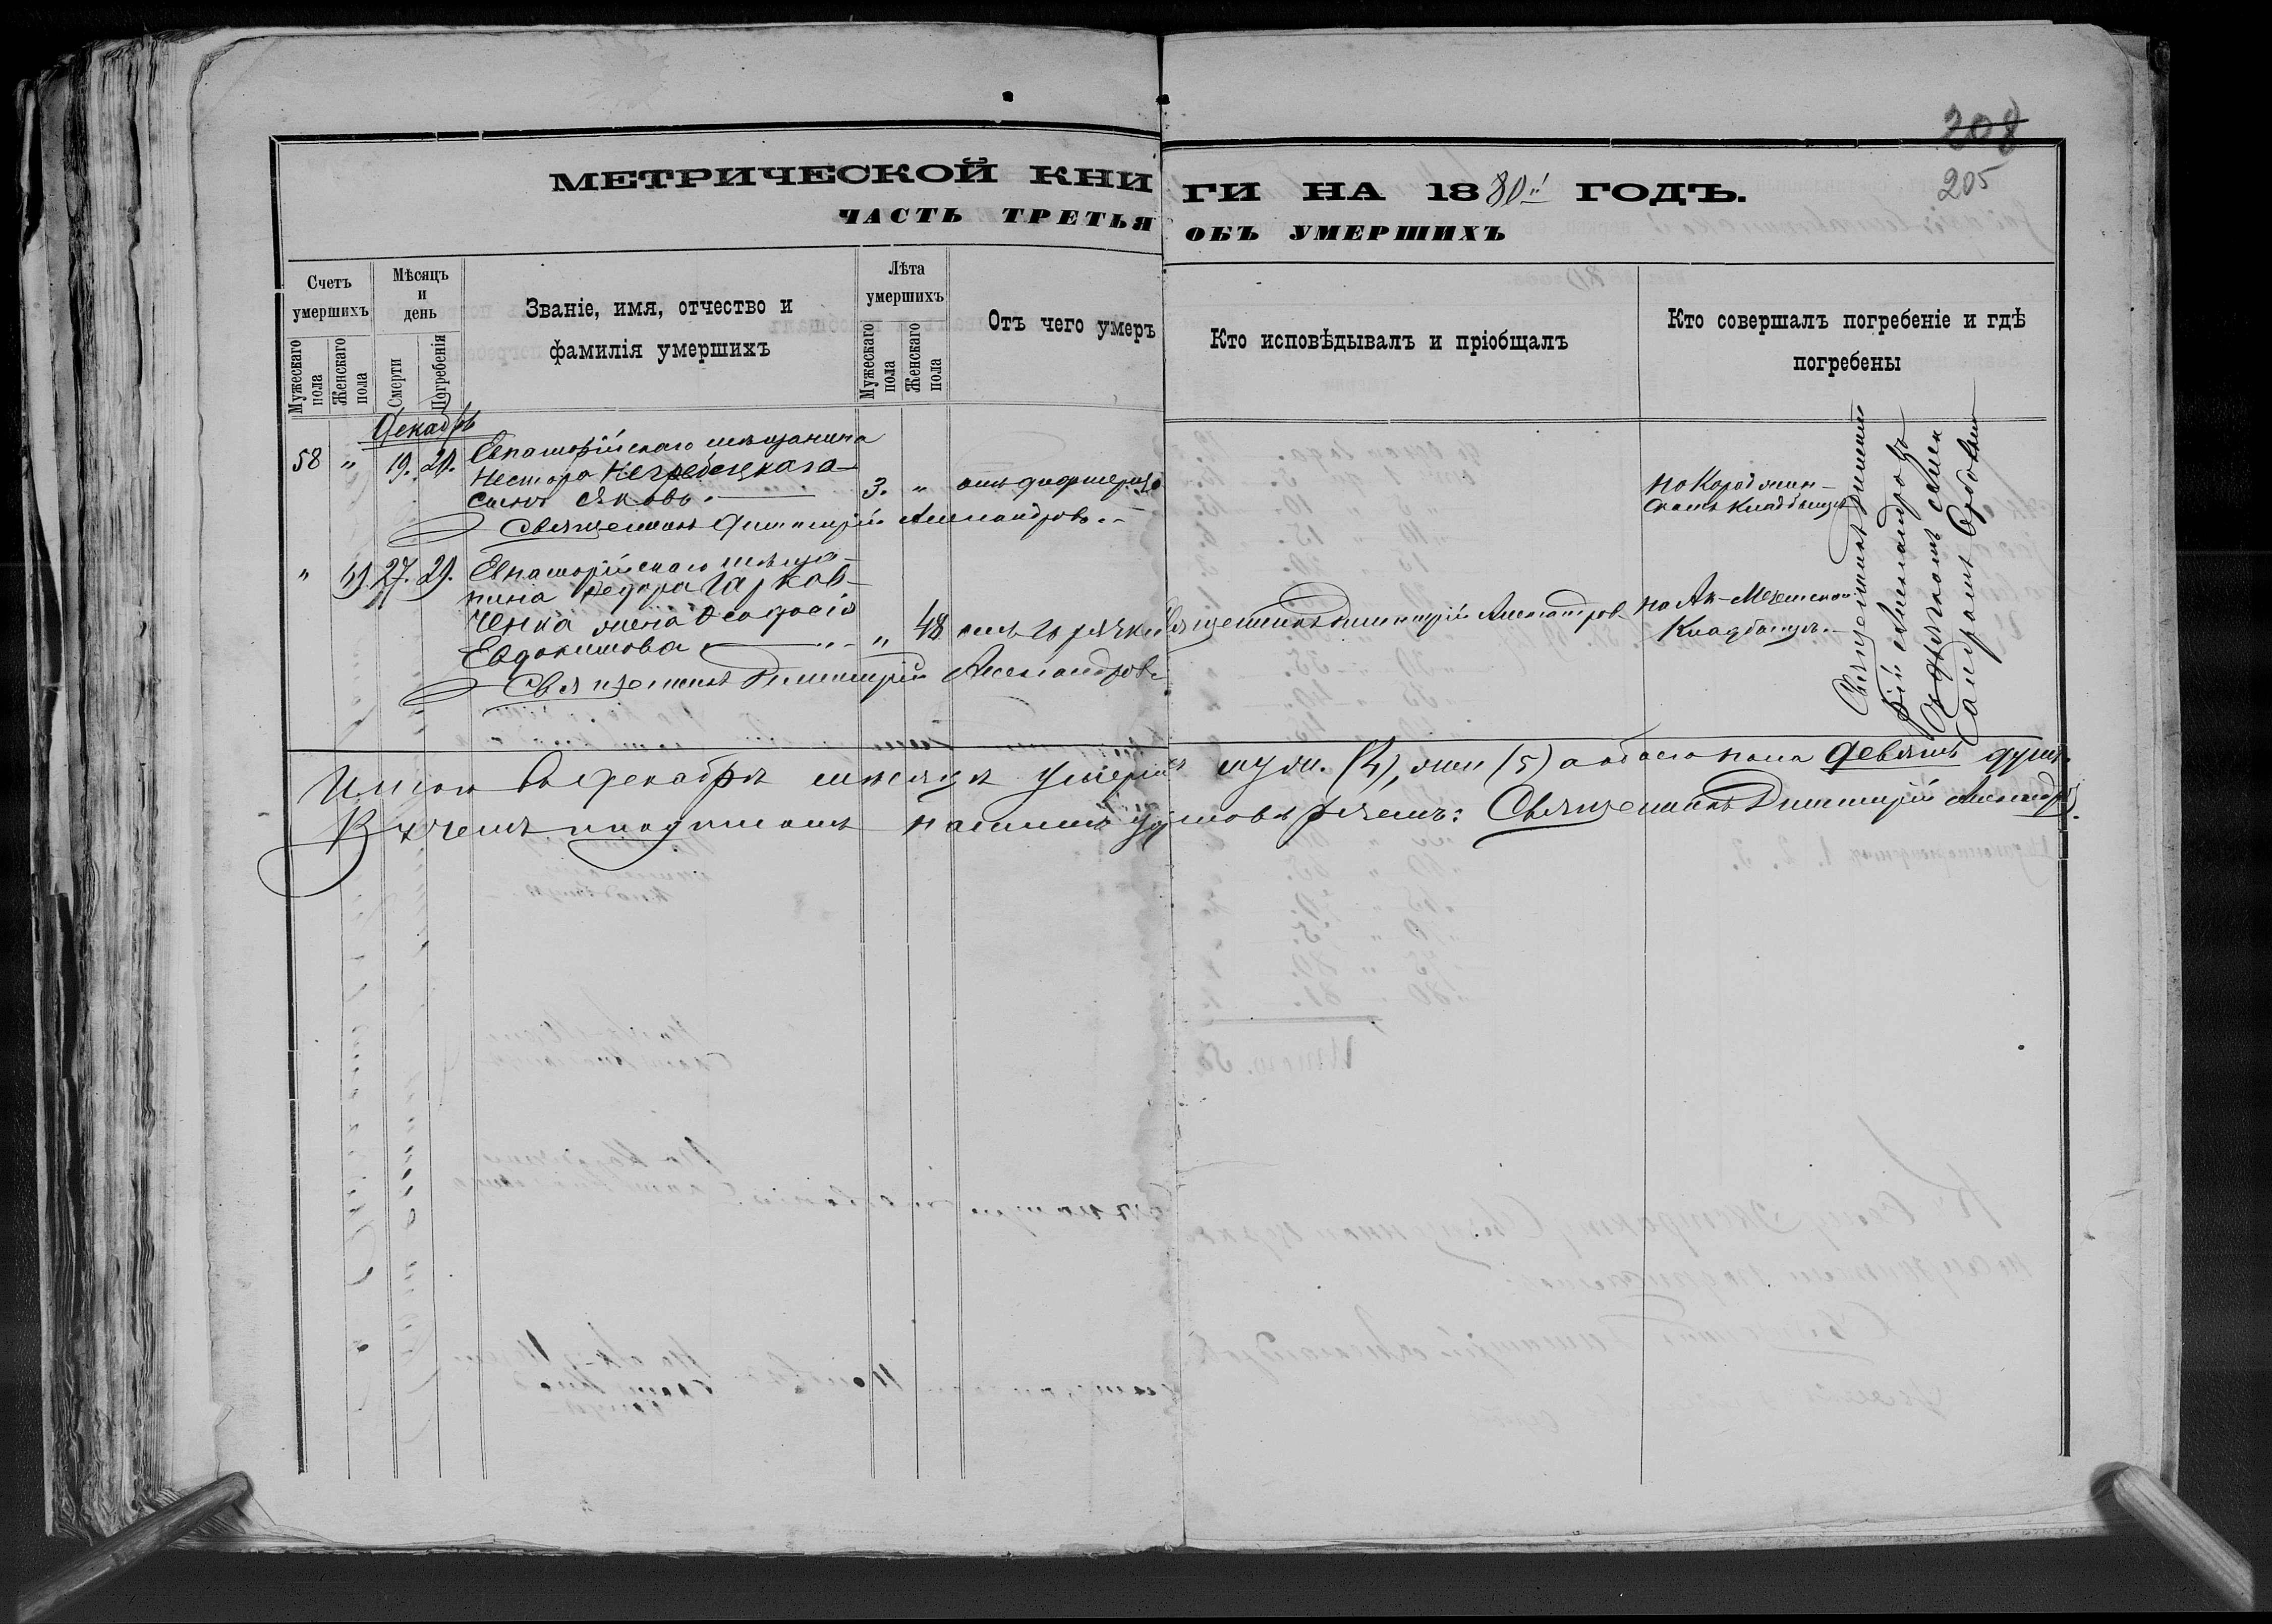 208
205
МЕТРИЧЕСКОЙ КНИГИ НА 1880й ГОДЪ.
ЧАСТЬ ТРЕТЬЯ ОБЪ УМЕРШИХЪ
Счетъ умершихъ
Мужескаго пола
Женскаго пола
Мѣсяцъ и день
Смерти
Погребенія
Званіе, имя, отчество и
фамилія умершихъ
Лѣта умершихъ
Мужескаго пола
Женскаго пола
Отъ чего умеръ
Кто исповѣдывалъ и пріобщалъ
Кто совершалъ погребеніе и гдѣ
погребены
Декабрь
58 " 19. 21. Евпаторійскаго мѣщанина
Нестора
сынъ Яковъ. 3. " отъ дифтерита
Священникъ Димитрій Александровъ.
на
скомъ кладбищѣ
" 27. 29. Евпаторійскаго мѣща-
нина Ѳедора Гарков-
ченка жена Ѳеодосія
Евдокимова " 48 отъ горячки
Священникъ Димитрій Александровъ
на Ак-Мечетском
Кладбищѣ.
Священникъ Димитрій Александровъ
Священникъ Димит-
рій Александровъ
Съ дьячкомъ Алек
сандромъ
Итого въ декабрѣ мѣсяцѣ умерло муж. (4), жен (5) а обоего пола девять душъ.
В чемъ и подписомъ нашимъ удостовѣряемъ: Священникъ Димитрій Александровъ.